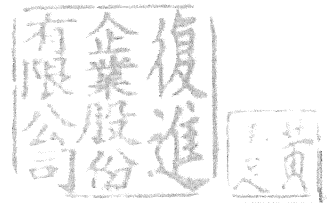 復進
企業股份
有限公司
黃